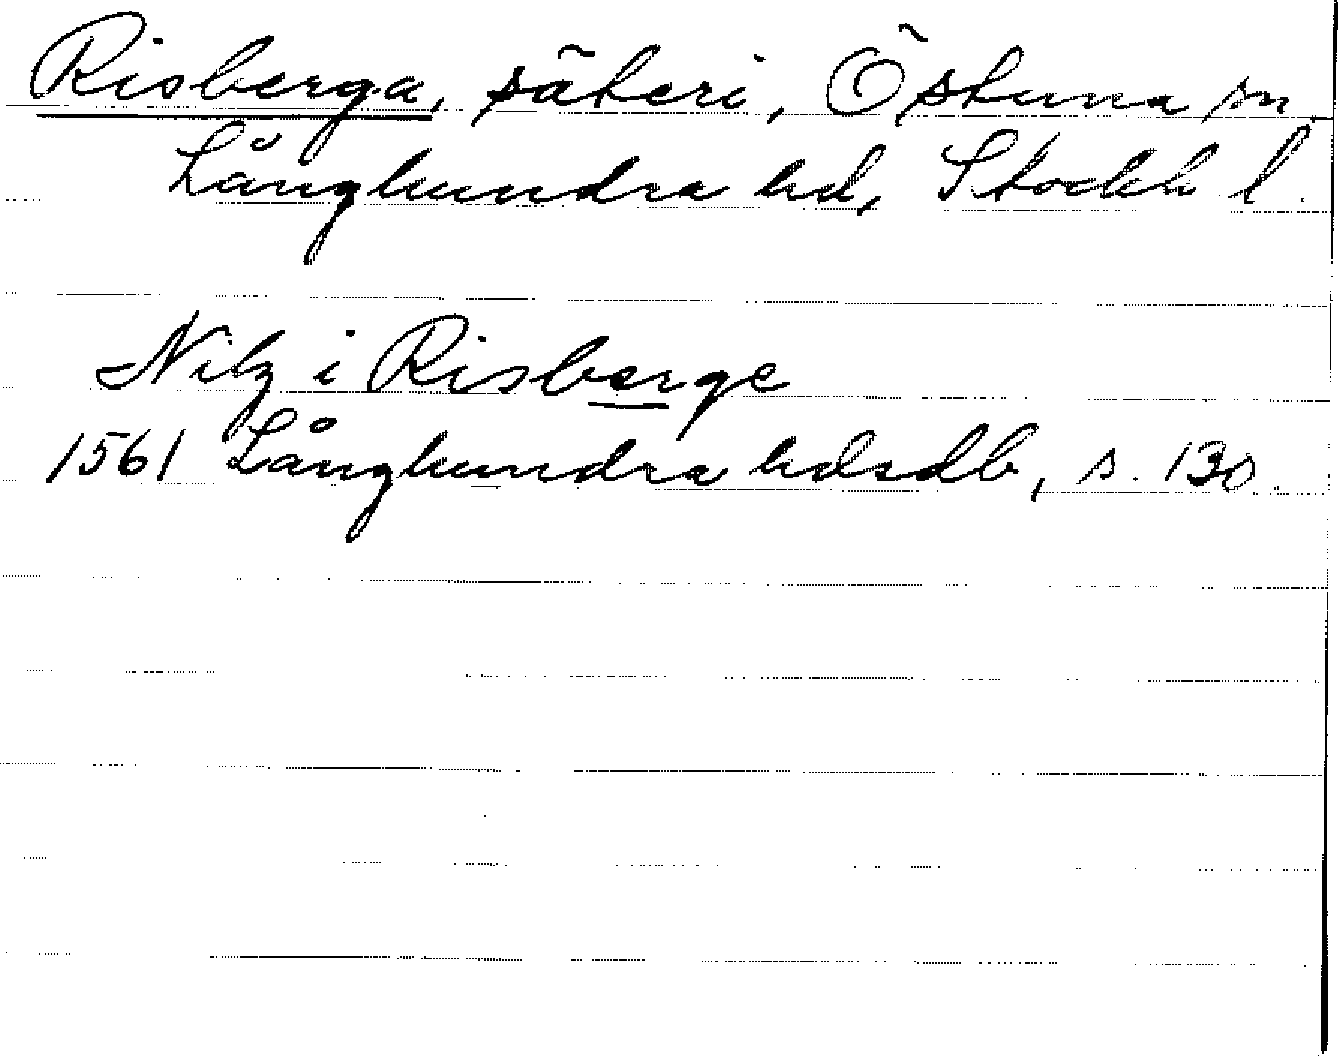 Risberga, säteri, Östuna sn.
Långhundra hd, Stockh l.
Nilz i Risberge
1561 Långhundra hdsdb, s. 130.